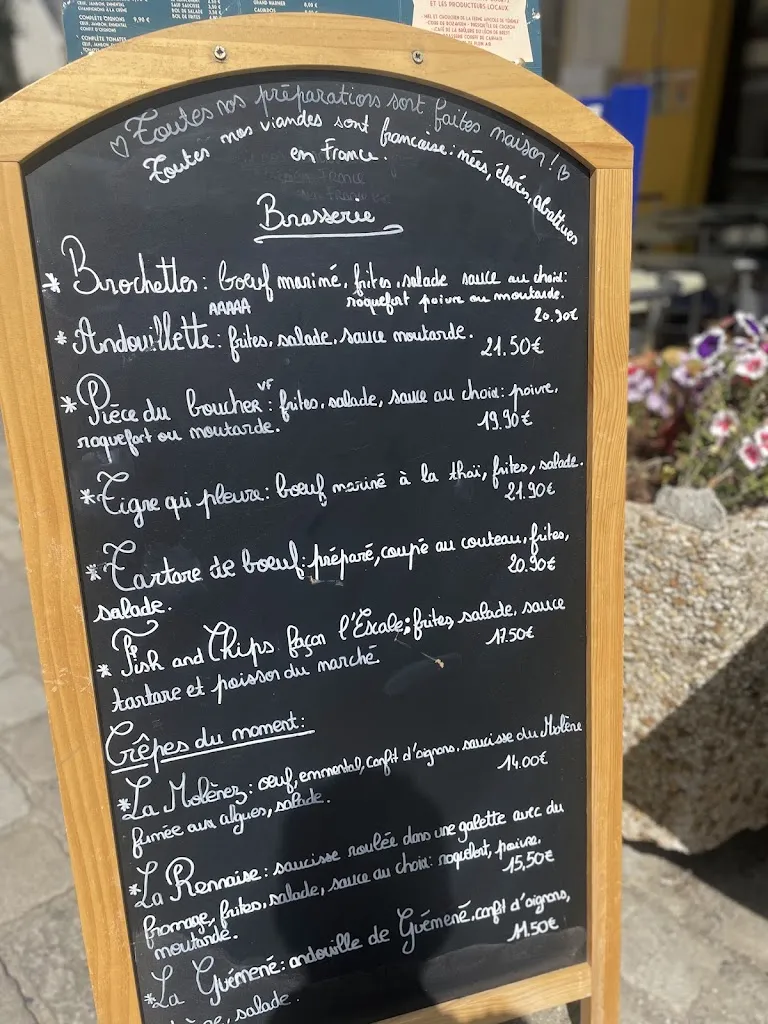 COMPLÈTE OIGNONS 9,90 €
COMPLÈTE TOMATES
ET LES PRODUCTEURS LOCAUX
♡ Toutes nos préparations sont faites maison! ♡
Toutes nos viandes sont française: nées, élevées, abattues
en France.
Brasserie
* Brochettes: boeuf mariné, frites, salade sauce au choix:
roquefort poivre ou moutarde.
20.90€
AAAAA
* Andouillette: frites, salade, sauce moutarde.
21.50€
* Pièce du boucher VF: frites, salade, sauce au choix: poivre,
roquefort ou moutarde.
19.90€
* Tigre qui pleure: boeuf mariné à la thaï, frites, salade.
21.90€
* Tartare de boeuf: préparé, coupé au couteau, frites,
salade.
20.90€
* Fish and Chips façon l'Escale: frites, salade, sauce
tartare et poisson du marché
17.50€
Crêpes du moment:
* La Molènez: oeuf, emmental, confit d'oignons, saucisse du Molène
fumée aux algues, salade.
14.00€
* La Rennaise: saucisse roulée dans une galette avec du
fromage, frites, salade, sauce au choix: roquefort, poivre,
moutarde.
15,50€
* La Guémené: andouille de Guémené, confit d'oignons,
salade.
11.50€